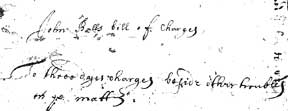 John Betts bill of Charges
To three dayes charges beside other trouble
in ye matter